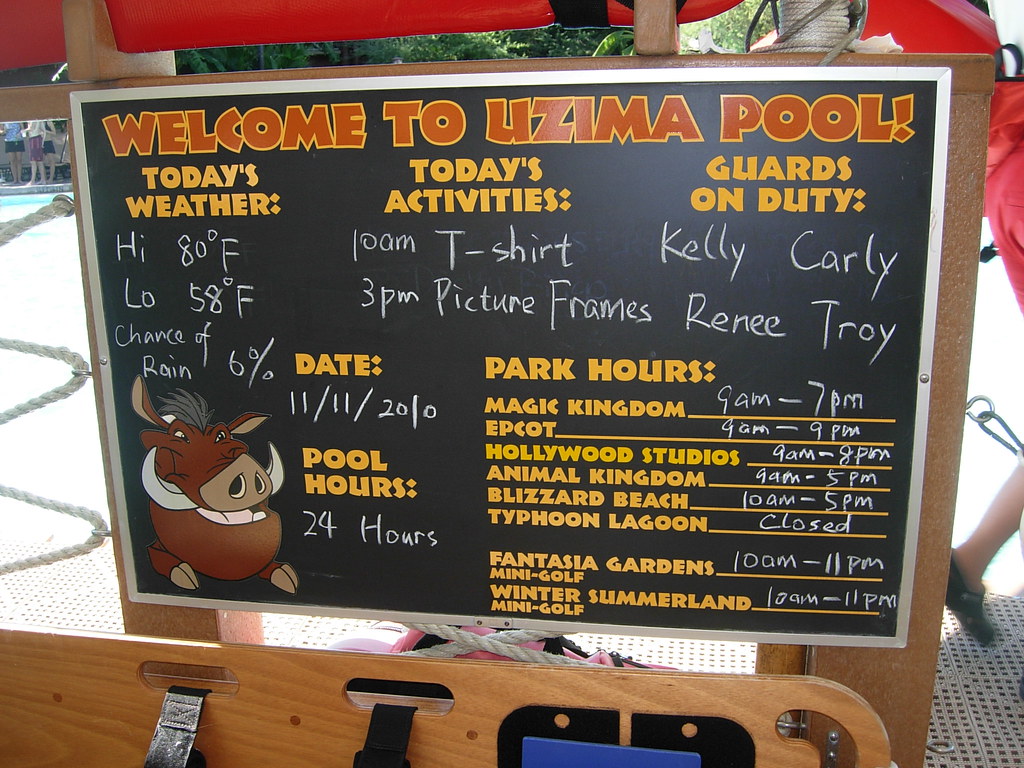 WELCOME TO UZIMA POOL!
TODAY'S
WEATHER:
Hi 80°F
Lo 58°F
Chance of
Rain 6%
TODAY'S
ACTIVITIES:
10am T-shirt
3pm Picture Frames
GUARDS
ON DUTY:
Kelly Carly
Renee Troy
DATE:
11/11/2010
POOL
HOURS:
24 Hours
PARK HOURS:
MAGIC KINGDOM 9am - 7pm
EPCOT 9am - 9pm
HOLLYWOOD STUDIOS 9am - 8pm
ANIMAL KINGDOM 9am - 5pm
BLIZZARD BEACH 10am - 5pm
TYPHOON LAGOON Closed
FANTASIA GARDENS 10am - 11pm
MINI-GOLF
WINTER SUMMERLAND 10am - 11pm
MINI-GOLF